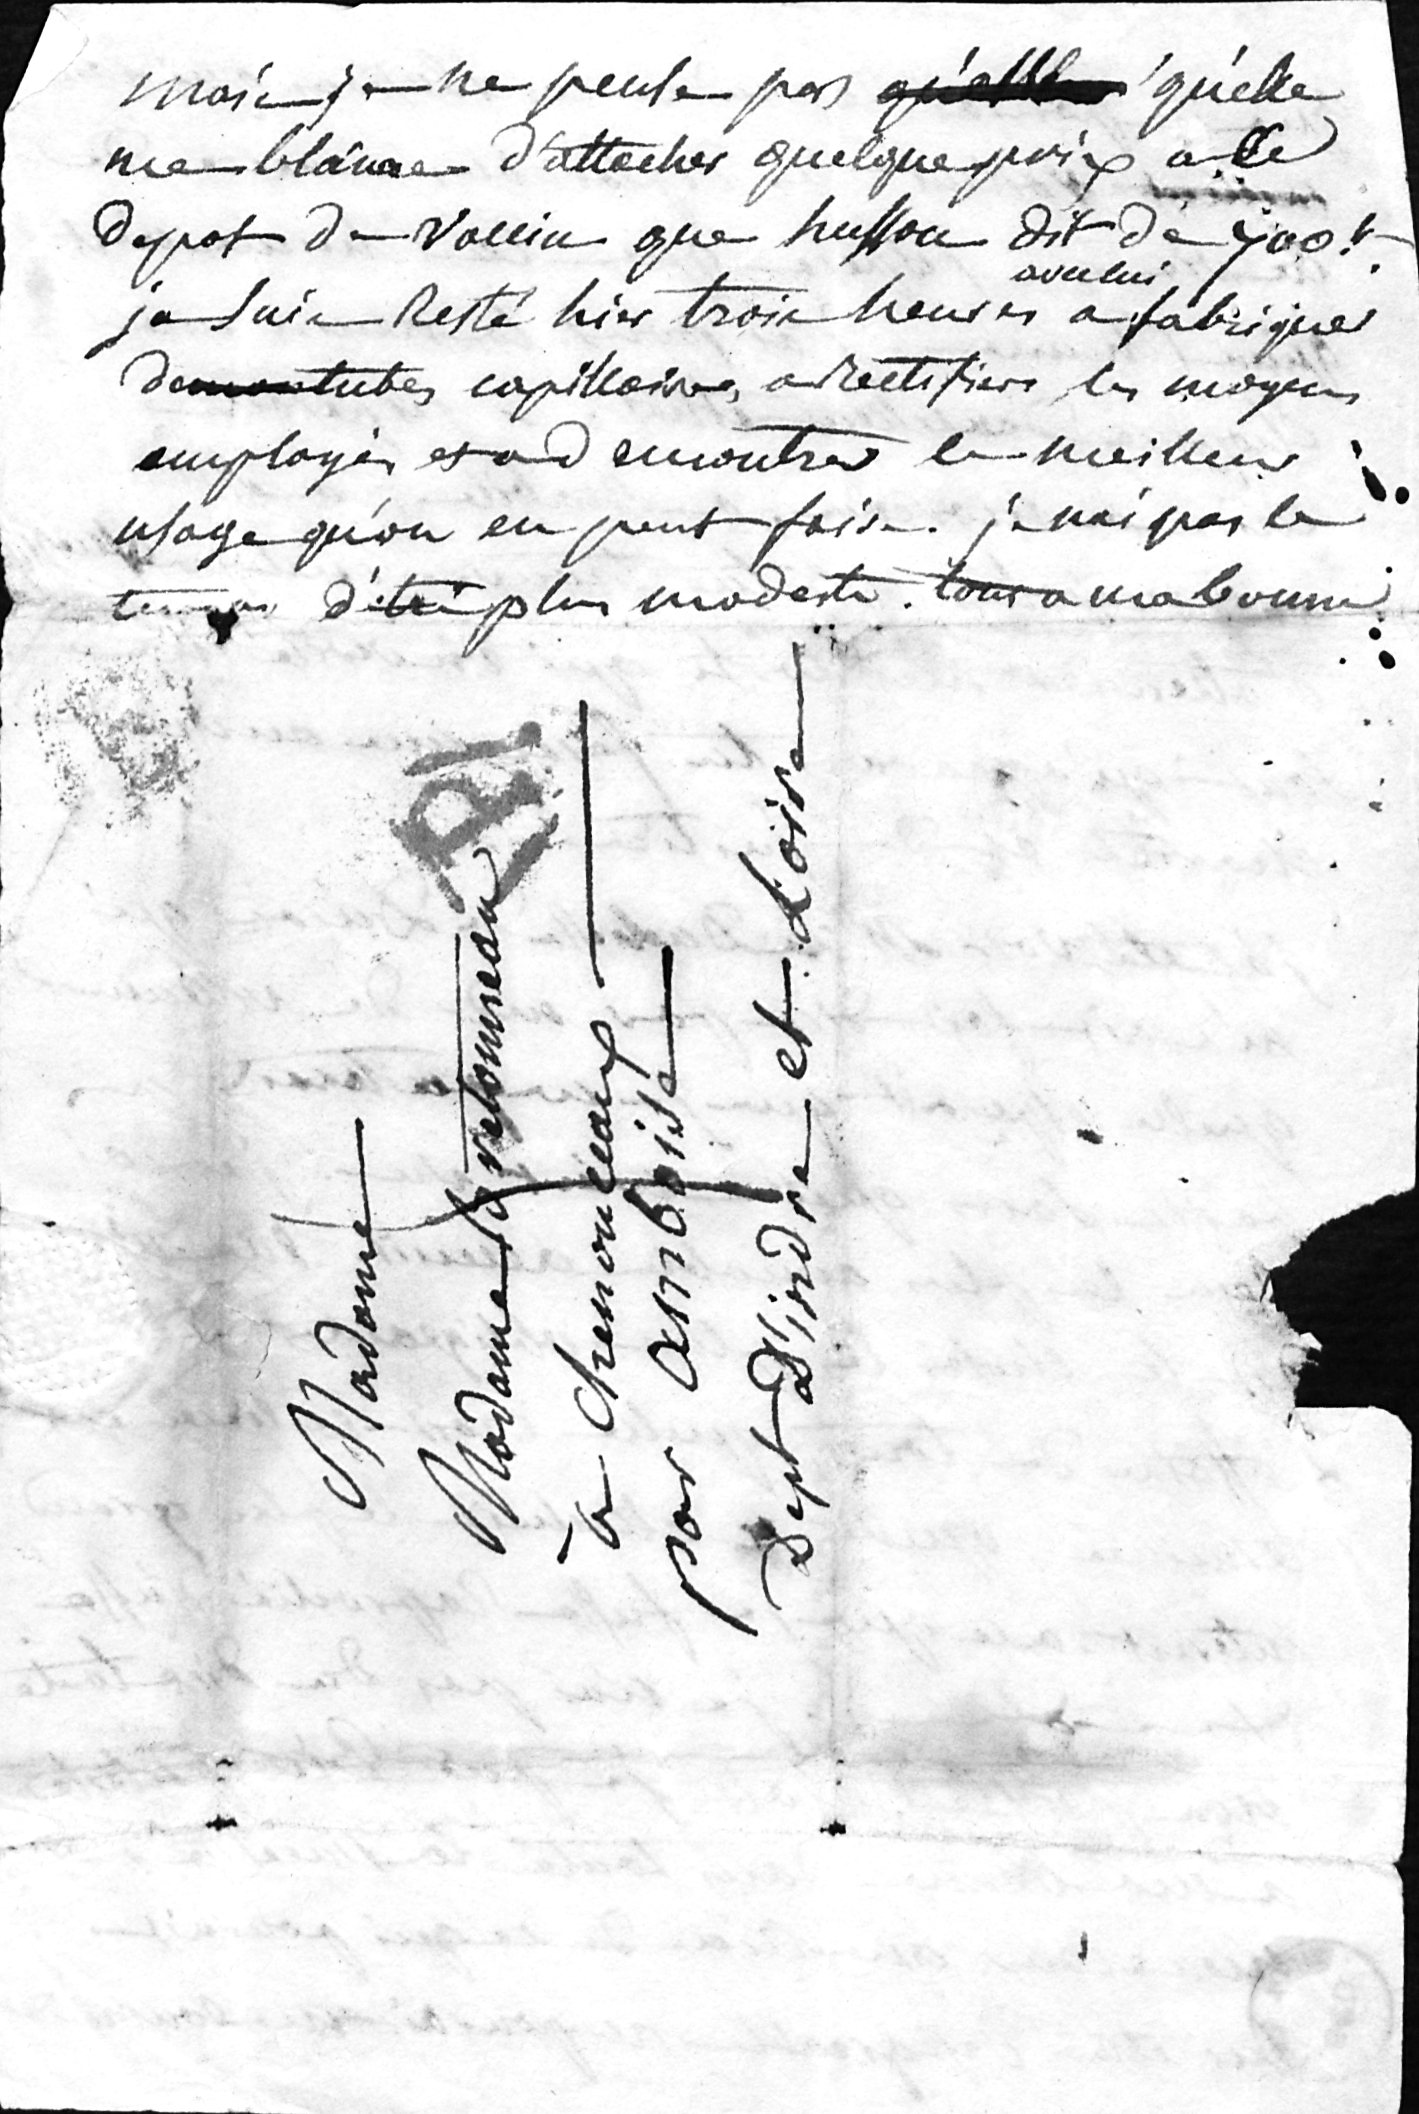 mais je ne pense pas qu'elle
me blâme d'attacher quelque prix a ce
depot de vaccin que husson dit de 900 ft.
avec lui
je suis resté hier trois heures a fabriquer
de tubes capillaires, a rectifier les moyens
employés et a demontrer le meilleur
usage qu'on en peut faire. je n'ai pas le
tems d'être plus modeste. tout a ma bonne
Madame
Madame Bretonneau
à chenonceaux
par amboise
Dept D'indre et Loire
P.P.